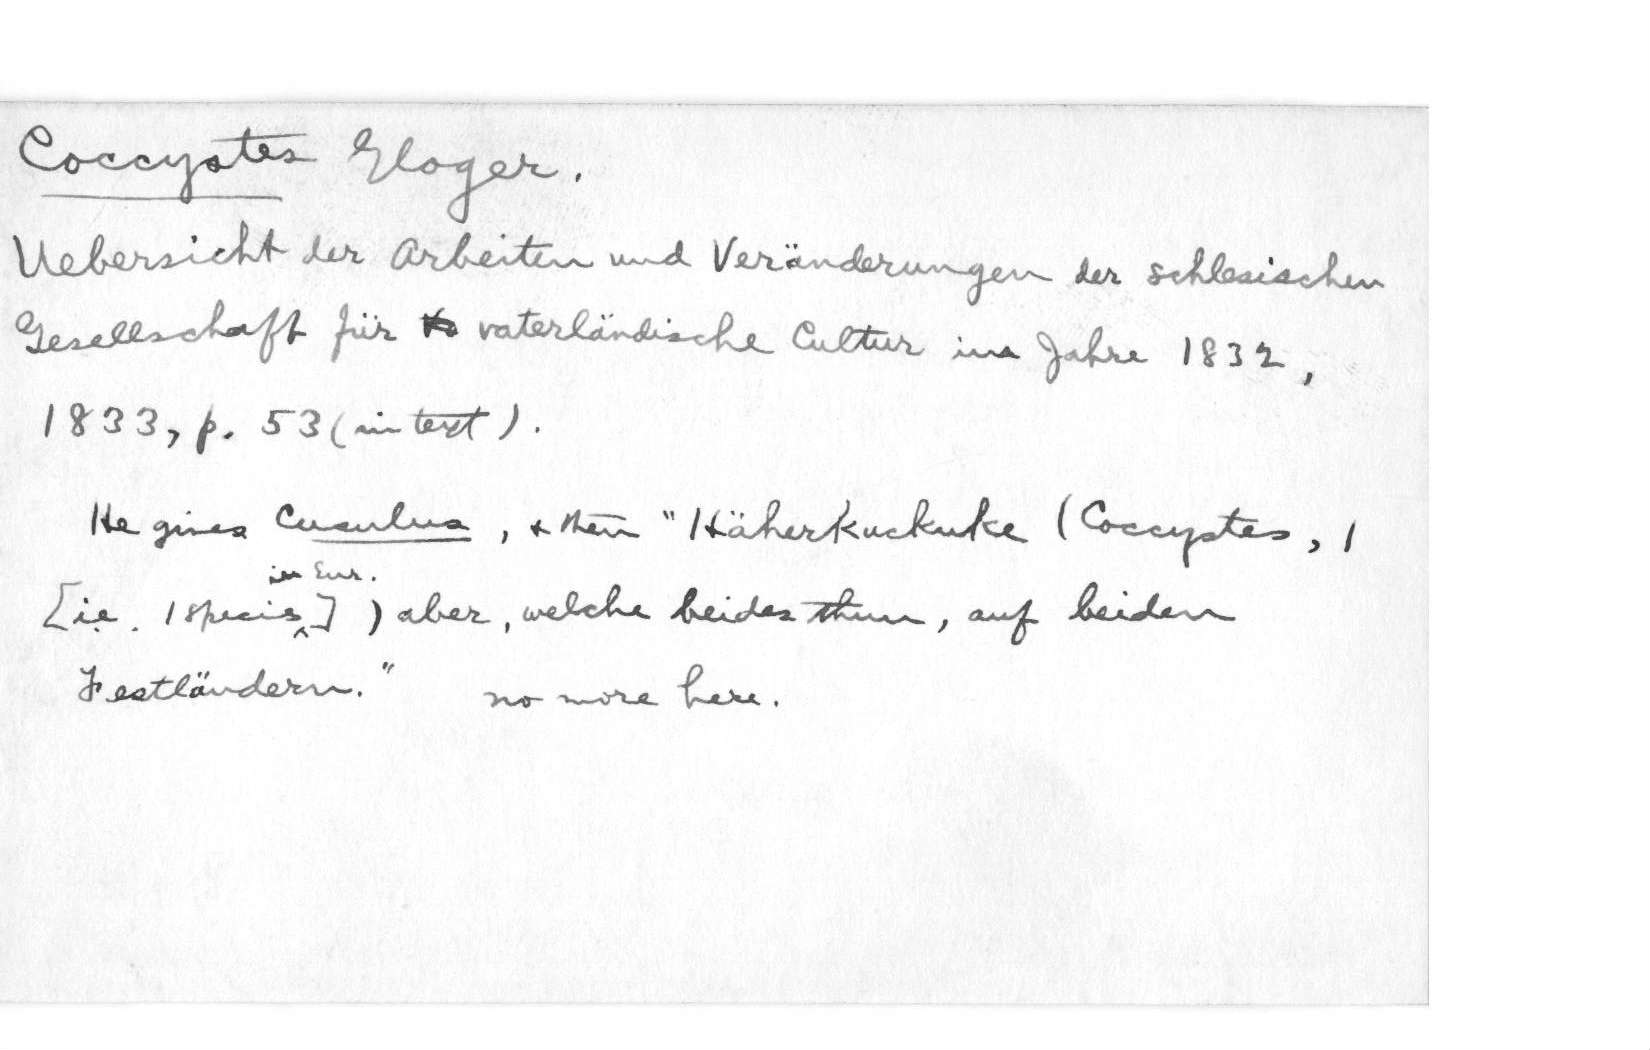 Coccystes Gloger.
Uebersicht der Arbeiten und Veränderungen der schlesischen
Gesellschaft für vaterländische Cultur im Jahre 1832,
1833, p. 53 (in text).
He gives Cuculus, & then "Häherkuckuke (Coccystes, 1
in Eur.
[i.e. 1 species^]) aber, welche beides thun, auf beiden
Festländern." no more here.